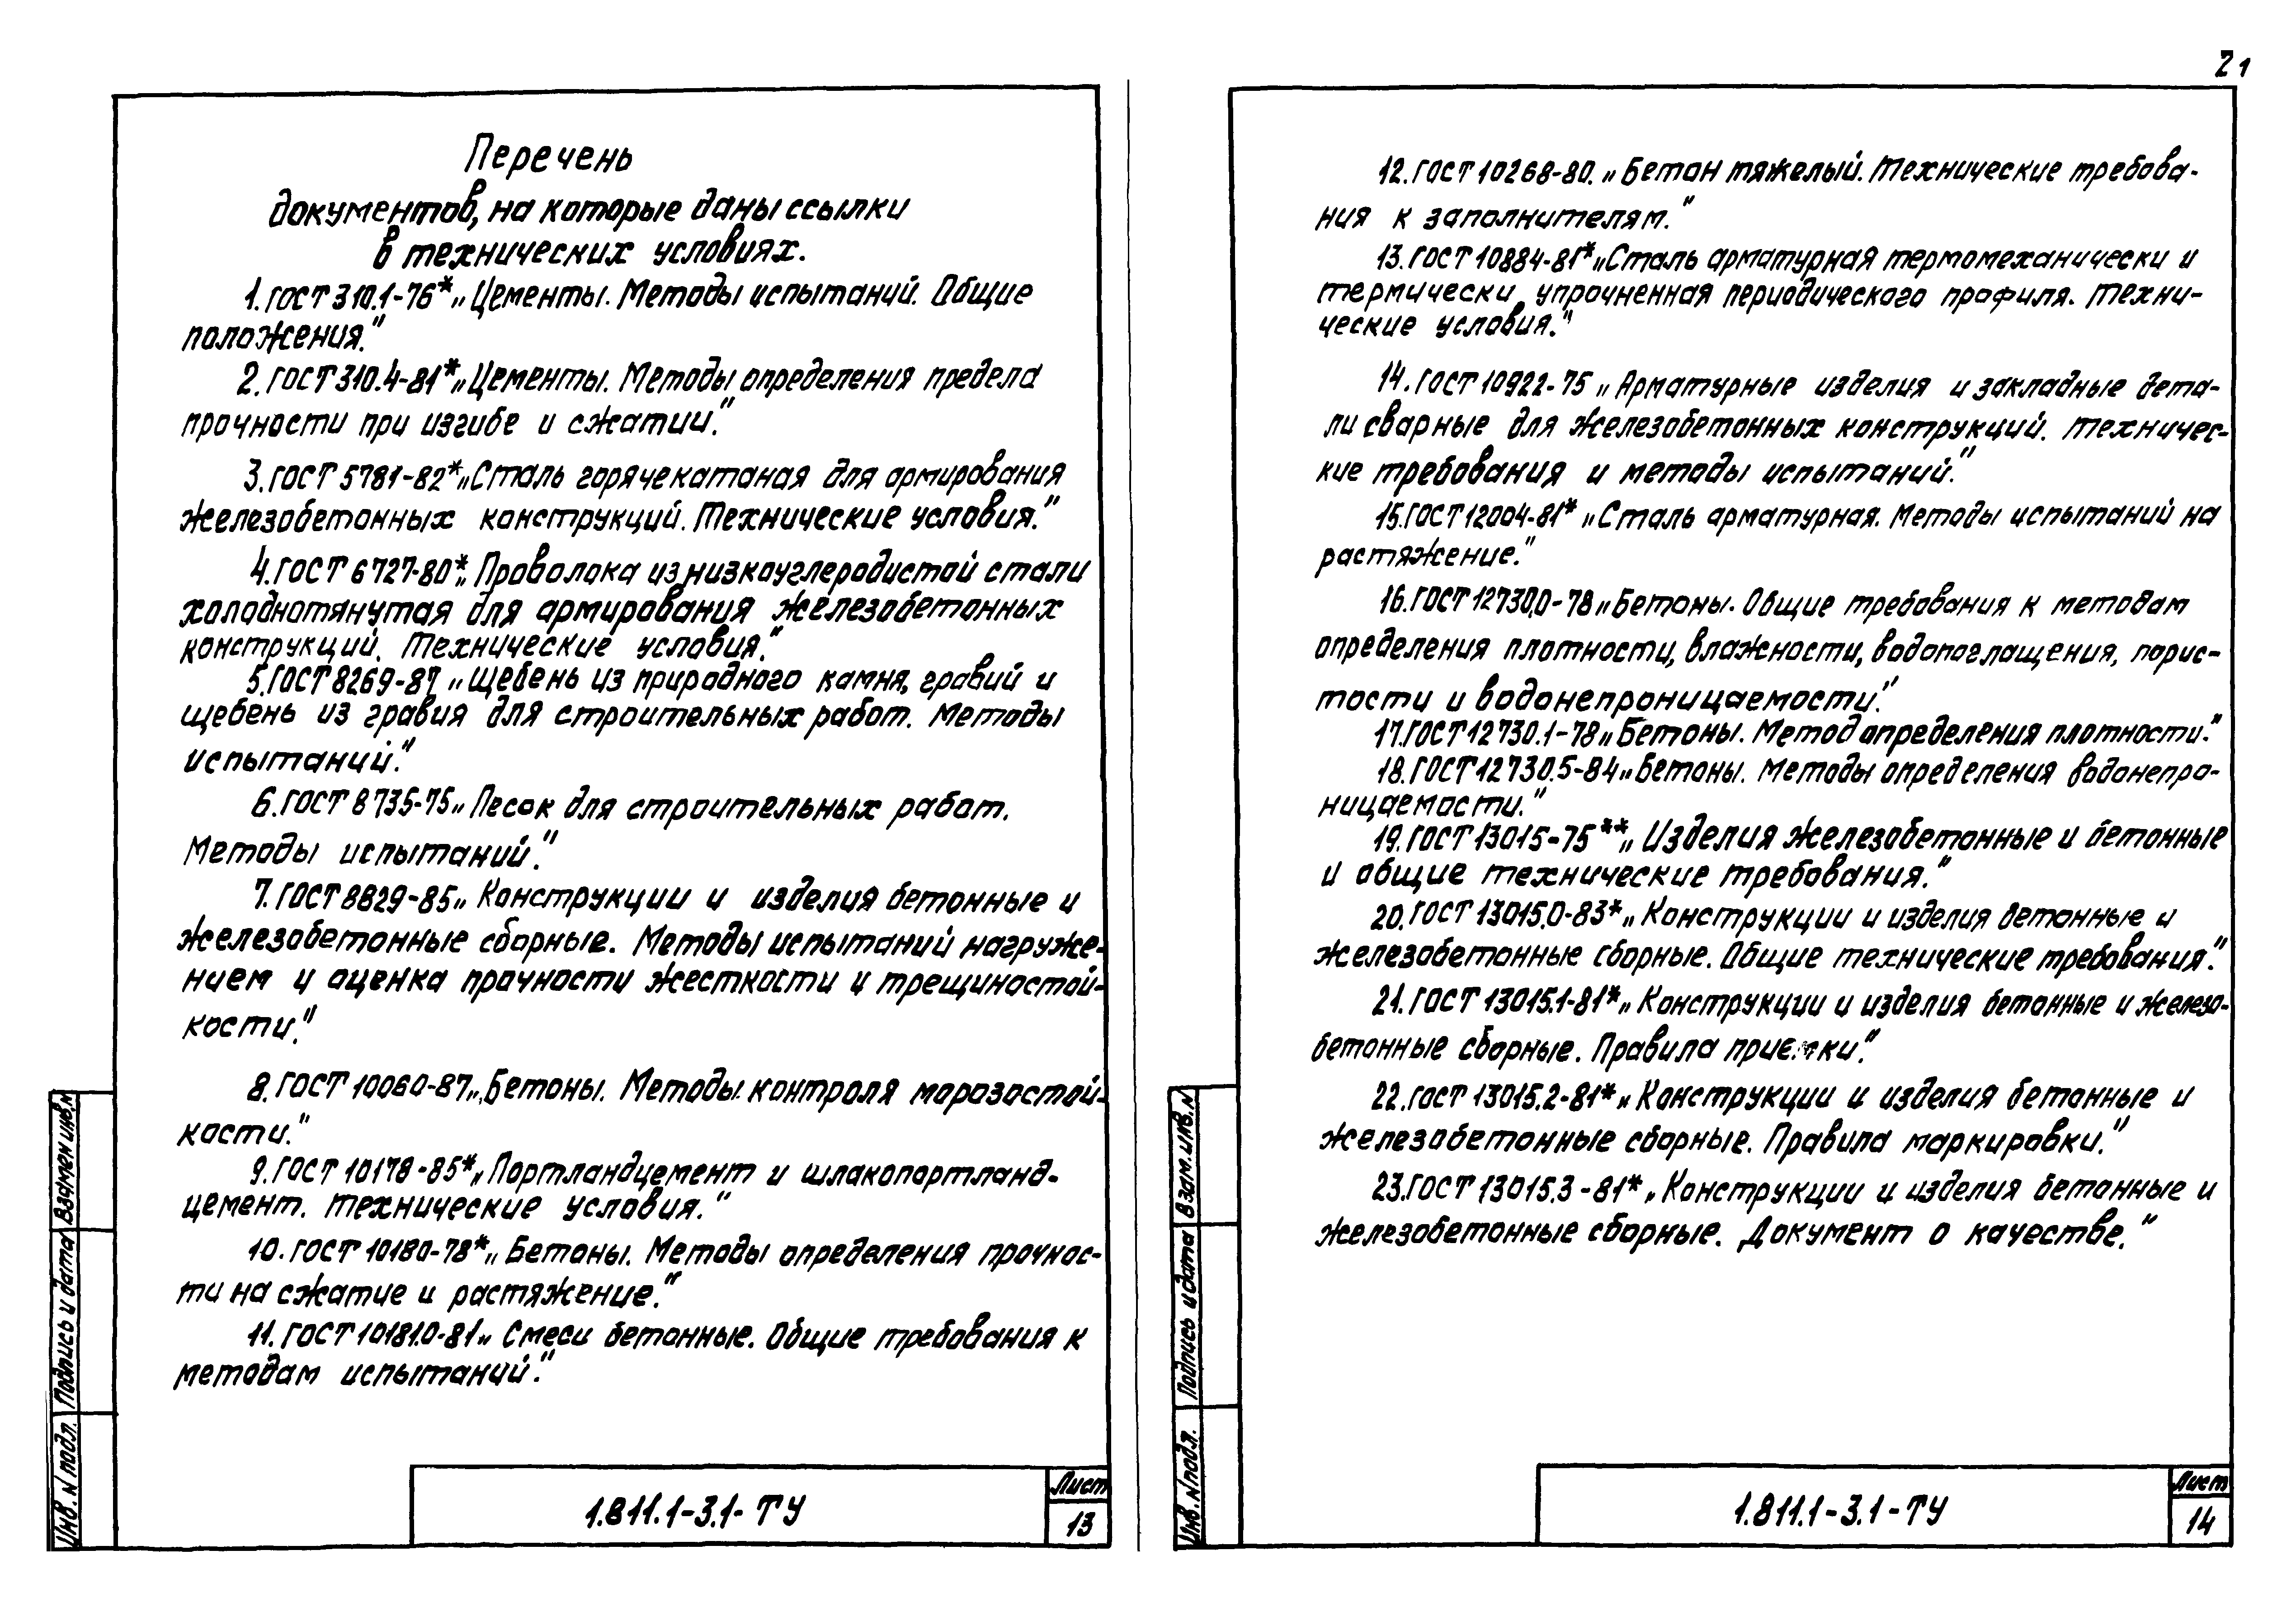 21
Перечень
документов, на которые даны ссылки
в технических условиях.
1. ГОСТ 310.1-76* „Цементы. Методы испытаний. Общие
положения."
2. ГОСТ 310.4-81* „Цементы. Методы определения предела
прочности при изгибе и сжатии."
3. ГОСТ 5781-82* „Сталь горячекатаная для армирования
железобетонных конструкций. Технические условия."
4. ГОСТ 6727-80* „Проволока из низкоуглеродистой стали
холоднотянутая для армирования железобетонных
конструкций. Технические условия."
5. ГОСТ 8269-87 „Щебень из природного камня, гравий и
щебень из гравия для строительных работ. Методы
испытаний."
6. ГОСТ 8735-75 „Песок для строительных работ.
Методы испытаний."
7. ГОСТ 8829-85 „Конструкции и изделия бетонные и
железобетонные сборные. Методы испытаний нагруже-
нием и оценка прочности жесткости и трещиностой-
кости."
8. ГОСТ 10060-87 „Бетоны. Методы контроля морозостой-
кости."
9. ГОСТ 10178-85* „Портландцемент и шлакопортланд-
цемент. Технические условия."
10. ГОСТ 10180-78* „Бетоны. Методы определения прочнос-
ти на сжатие и растяжение."
11. ГОСТ 10181.0-81 „Смеси бетонные. Общие требования к
методам испытаний."
Взамен инв.N
Подпись и дата
Инв. N подл.
1.811.1-3.1-ТУ
Лист
13
12. ГОСТ 10268-80. „Бетон тяжелый. Технические требова-
ния к заполнителям."
13. ГОСТ 10884-81* „Сталь арматурная термомеханически и
термически упрочненная периодического профиля. Техни-
ческие условия."
14. ГОСТ 10922-75 „Арматурные изделия и закладные дета-
ли сварные для железобетонных конструкций. Техничес-
кие требования и методы испытаний."
15. ГОСТ 12004-81* „Сталь арматурная. Методы испытаний на
растяжение."
16. ГОСТ 12730.0-78 „Бетоны. Общие требования к методам
определения плотности, влажности, водопоглащения, порис-
тости и водонепроницаемости."
17. ГОСТ 12730.1-78 „Бетоны. Метод определения плотности."
18. ГОСТ 12730.5-84 „Бетоны. Методы определения водонепро-
ницаемости."
19. ГОСТ 13015-75** „Изделия железобетонные и бетонные
и общие технические требования."
20. ГОСТ 13015.0-83* „Конструкции и изделия бетонные и
железобетонные сборные. Общие технические требования."
21. ГОСТ 13015.1-81* „Конструкции и изделия бетонные и железо-
бетонные сборные. Правила приемки."
22. ГОСТ 13015.2-81* „Конструкции и изделия бетонные и
железобетонные сборные. Правила маркировки."
23. ГОСТ 13015.3-81* „Конструкции и изделия бетонные и
железобетонные сборные. Документ о качестве."
Взам.инв.N
Подпись и дата
Инв. N подл.
1.811.1-3.1-ТУ
Лист
14